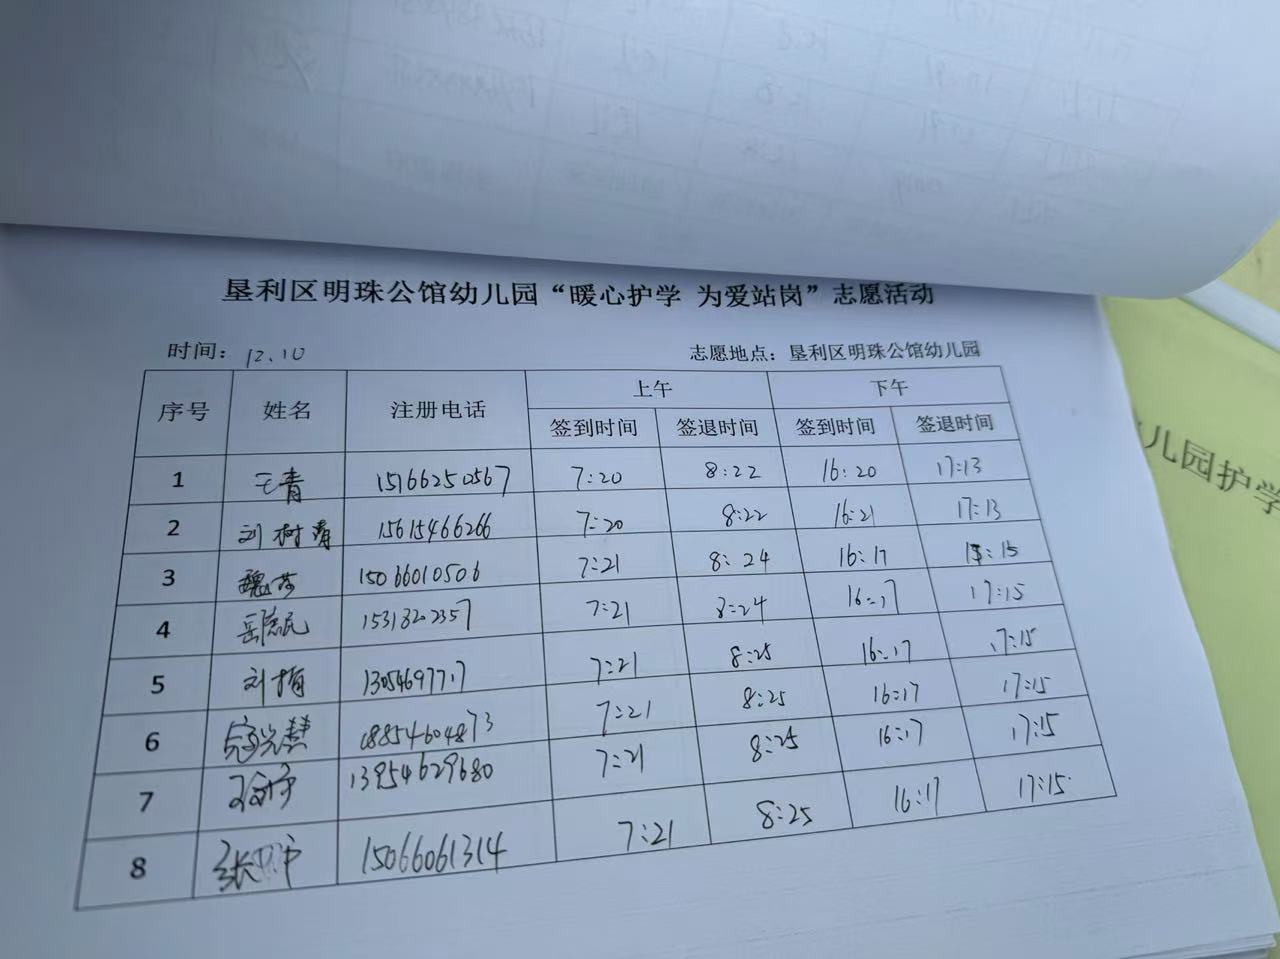 垦利区明珠公馆幼儿园“暖心护学 为爱站岗”志愿活动
时间：12.10 志愿地点：垦利区明珠公馆幼儿园
序号 姓名 注册电话 上午 下午
签到时间 签退时间 签到时间 签退时间
1 王青 15166250567 7:20 8:22 16:20 17:13
2 刘树青 15615466266 7:20 8:22 16:21 17:13
3 15066010506 7:21 8:24 16:17 15:15
4 7:21 8:24 16:17 17:15
5 7:21 8:25 16:17 17:15
6 18854604873 7:21 8:25 16:17 17:15
7 13954629680 7:21 8:25 16:17 17:15
8 15066061314 7:21 8:25 16:17 17:15
儿园护学